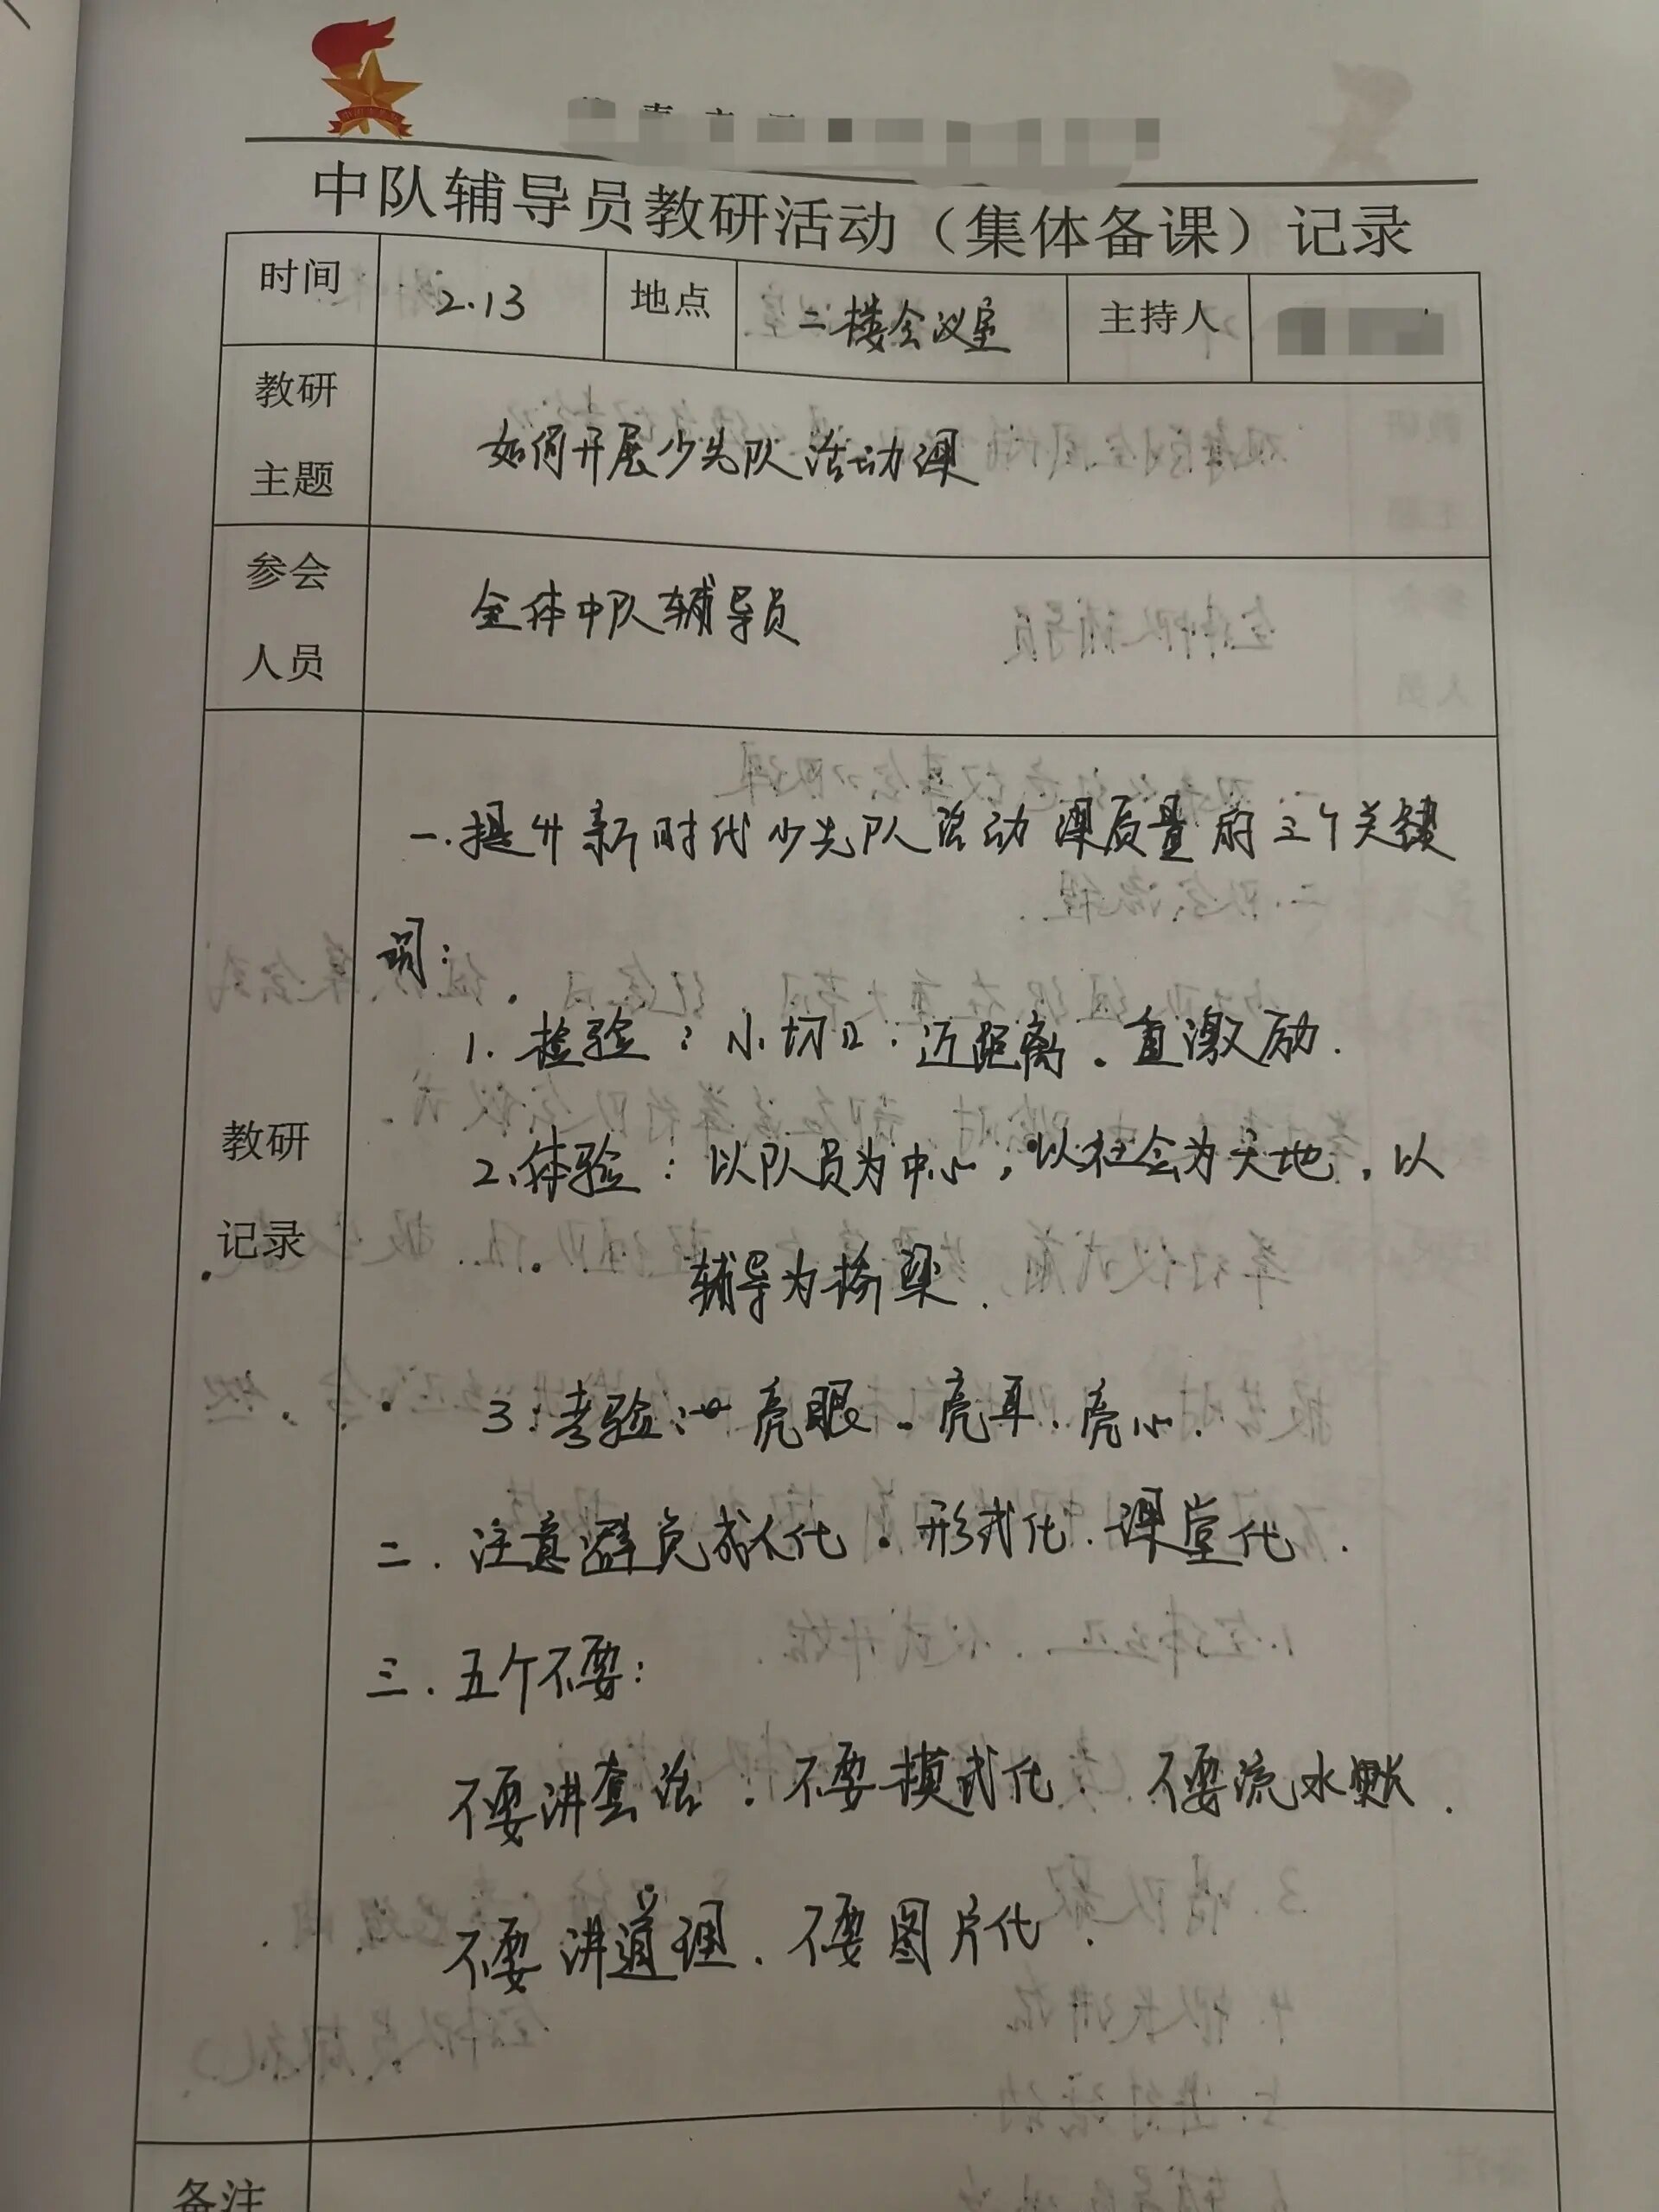 中队辅导员教研活动（集体备课）记录
时间 2.13 地点 二楼会议室 主持人
教研主题 如何开展少先队活动课
参会人员 全体中队辅导员
教研记录
一.提升新时代少先队活动课质量的三个关键
词：
1. 检验：小切口.近距离.直激励.
2. 体验：以队员为中心，以社会为天地，以
辅导为桥梁.
3. 考验：亮眼.亮耳.亮心.
二.注意避免成人化.形式化.课堂化.
三.五个不要：
不要讲套话.不要模式化.不要流水账.
不要讲道理.不要图片化.
备注